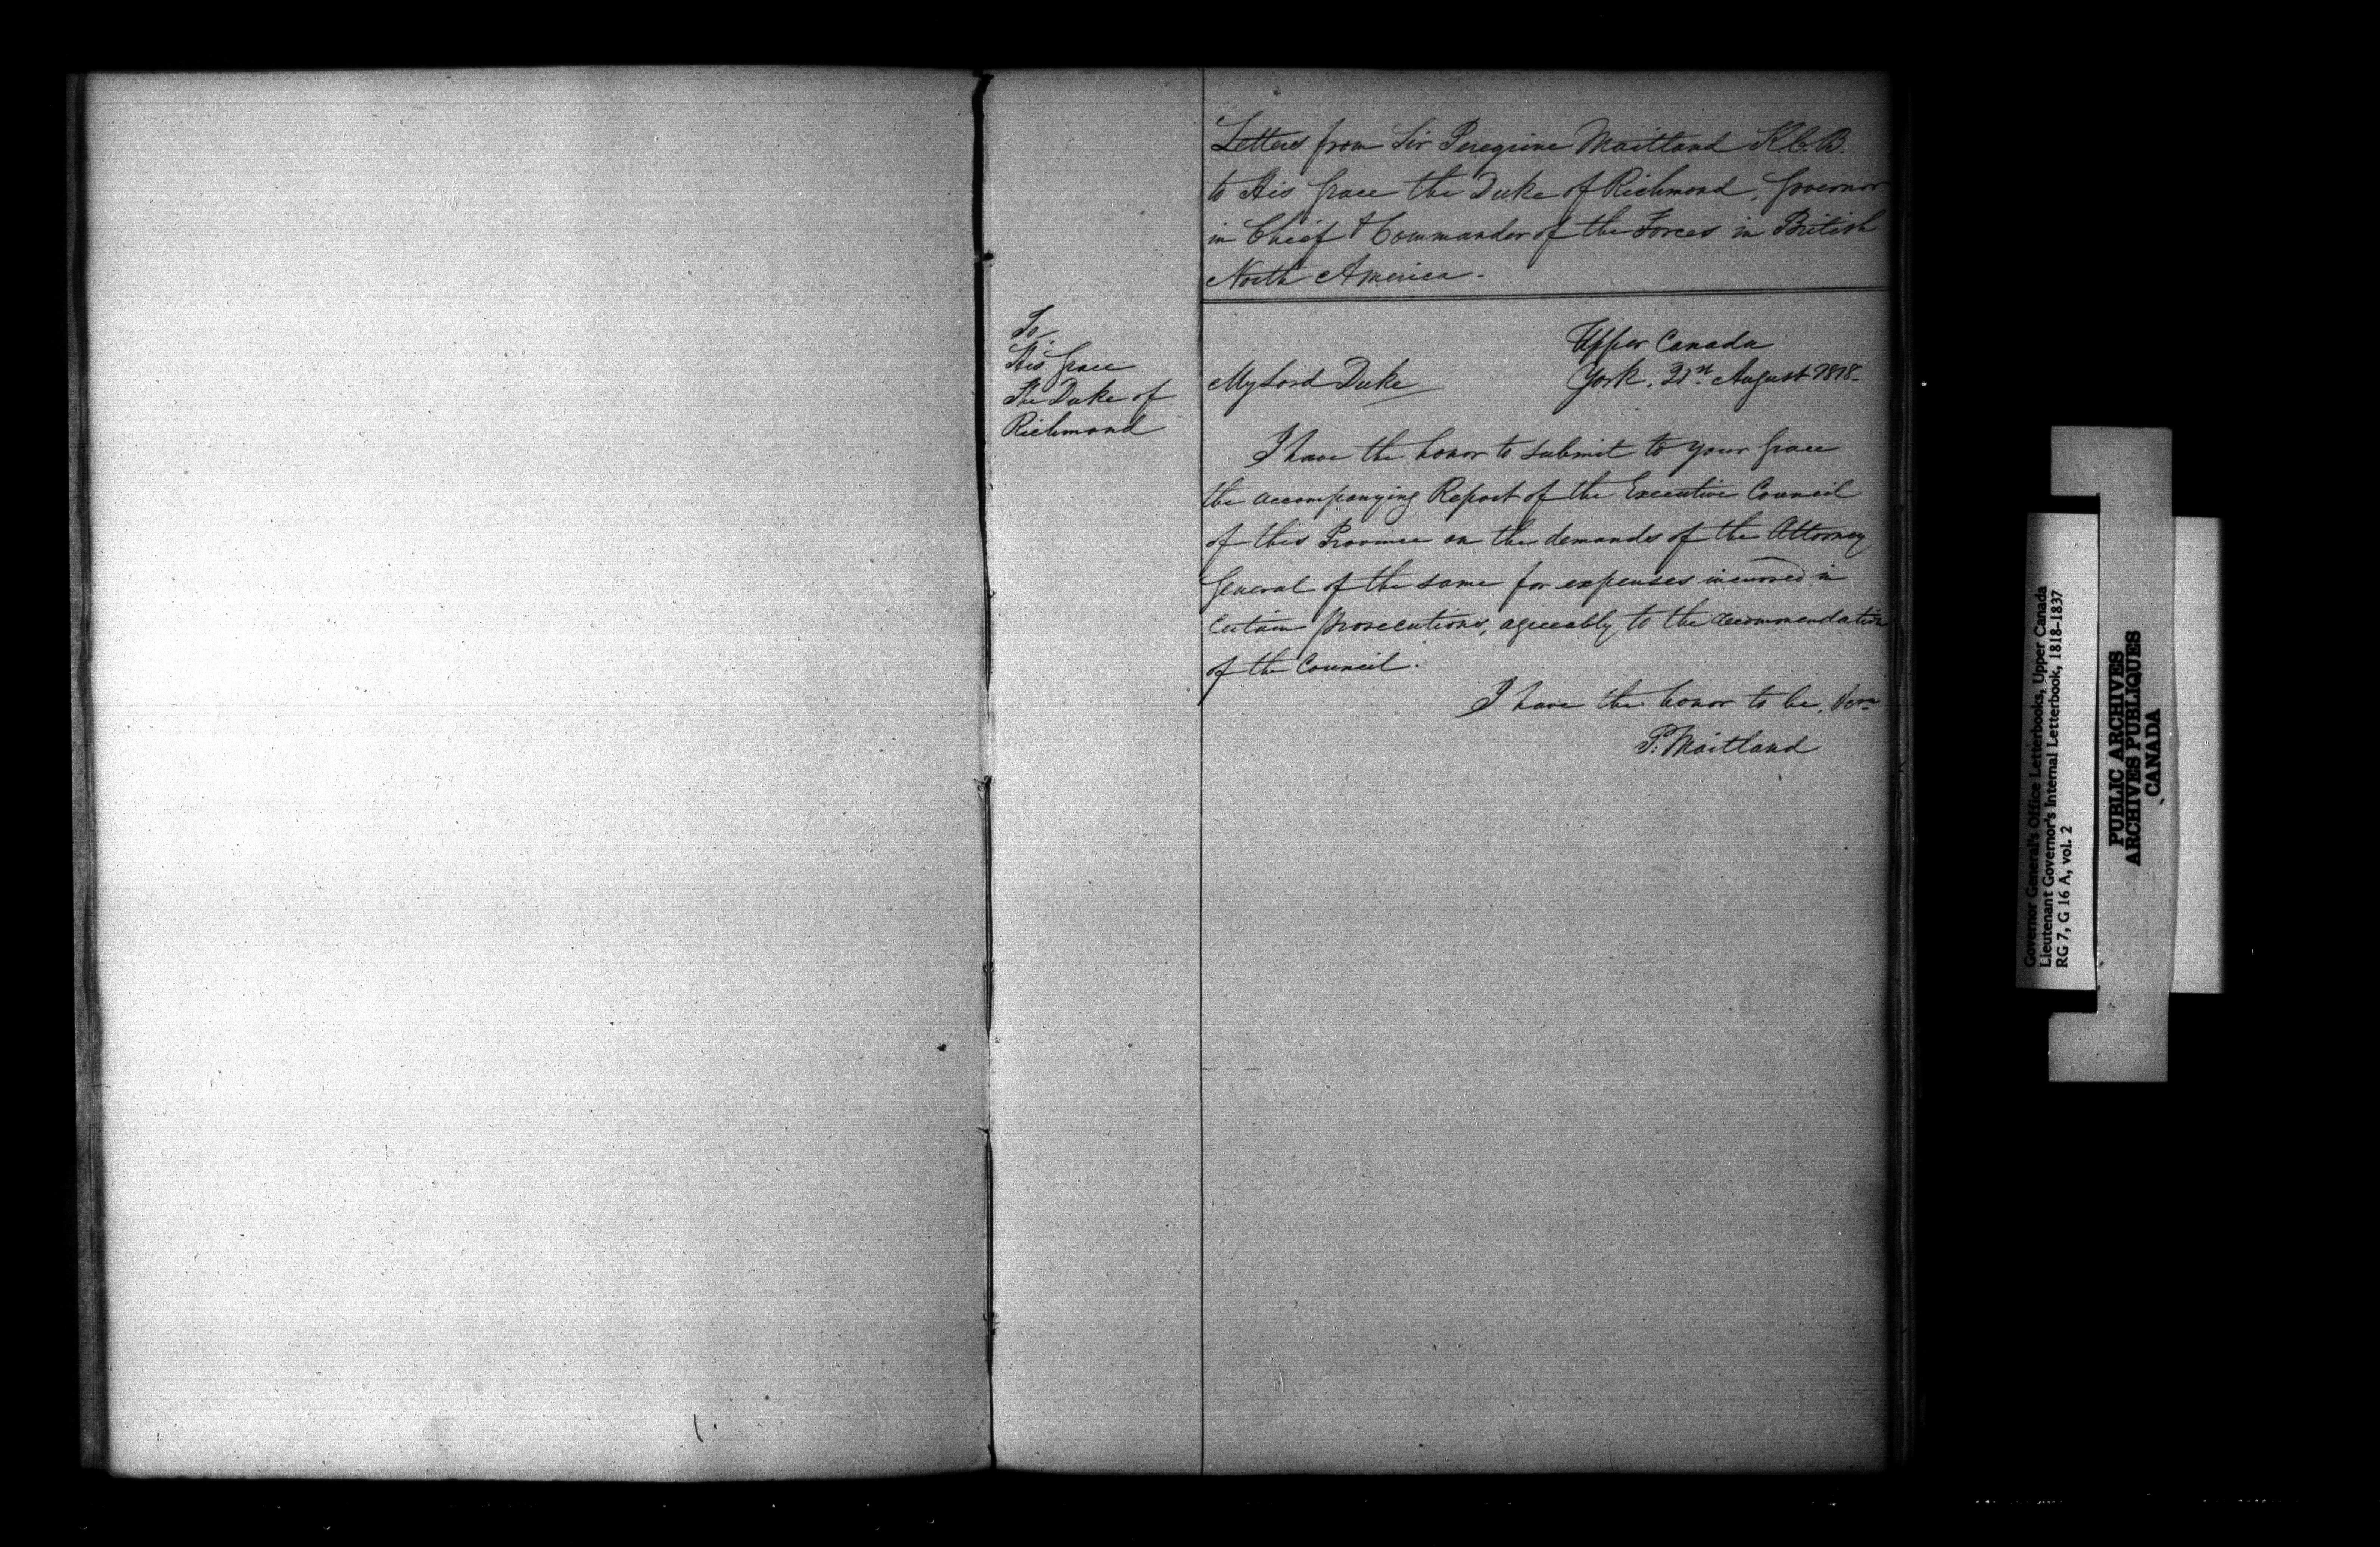 Letters from Sir Peregrine Maitland K.C.B.
to His Grace the Duke of Richmond, Governor
in Chief & Commander of the Forces in British
North America.
To
His Grace
The Duke of
Richmond
Upper Canada
York, 21st August 1818.
My Lord Duke
I have the honor to submit to your Grace
the accompanying Report of the Executive Council
of this Province on the demands of the Attorney
General of the same for expenses incurred in
Certain prosecutions, agreeably to the recommendation
of the Council.
I have the honor to be,
P. Maitland
Governor General's Office Letterbooks, Upper Canada
Lieutenant Governor's Internal Letterbook, 1818-1837
RG 7, G 16 A, vol. 2
PUBLIC ARCHIVES
ARCHIVES PUBLIQUES
CANADA